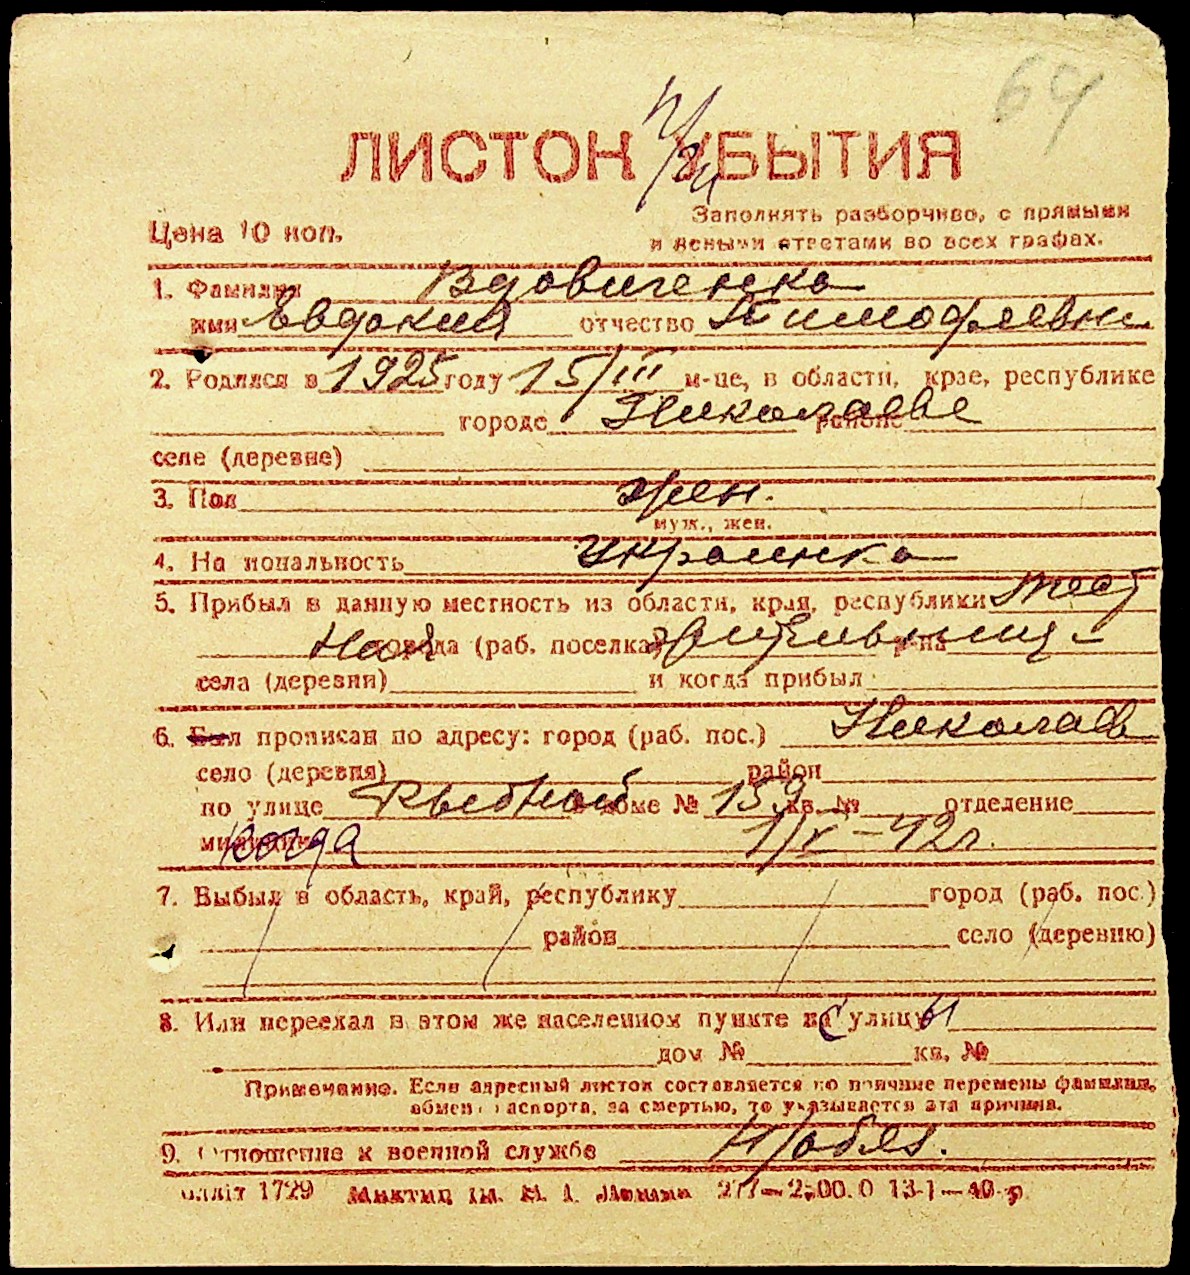 64
ЛИСТОК УБЫТИЯ
Цена 10 коп.
Заполнять разборчиво, с прямыми
и ясными ответами во всех графах.
1. Фамилия Вдовиченко
имя Евдокия отчество Тимофеевна
2. Родился в 1925 году 15/III м-це, в области, крае, республике
городе Николаеве районе
селе (деревне)
3. Пол жен.
муж., жен.
4. Национальность Украинка
5. Прибыл в данную местность из области, края, республики
города (раб. поселка) р-на
села (деревни) и когда прибыл
6. Был прописан по адресу: город (раб. пос.) Николаев
село (деревня) район
по улице Рыбной в доме № 159 кв. № отделение
милиции когда 1/V-42г.
7. Выбыл в область, край, республику город (раб. пос.)
район село (деревню)
8. Или переехал в этом же населенном пункте на улицу
дом № кв. №
Примечание. Если адресный листок составляется по причине перемены фамилии,
обмена паспорта, за смертью, то указывается эта причина.
9. Отношение к военной службе Н/обяз.
1729